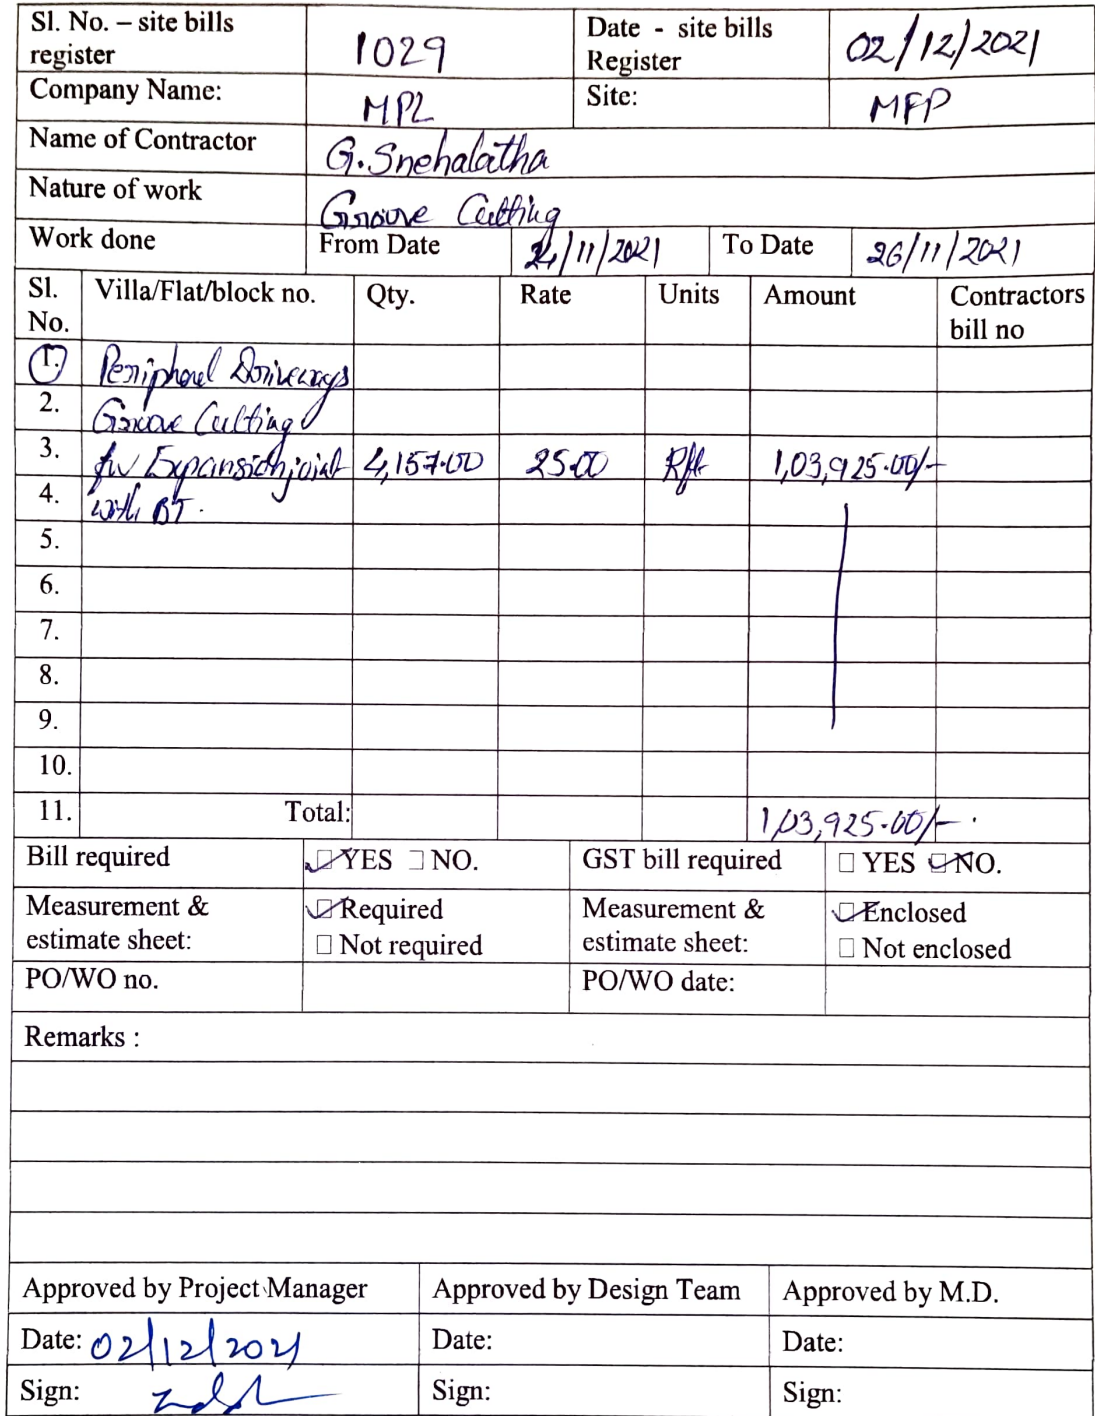 Sl. No. – site bills register 1029 Date - site bills Register 02/12/2021
Company Name: MPL Site: MFP
Name of Contractor G. Snehalatha
Nature of work Groove Cutting
Work done From Date 21/11/2021 To Date 26/11/2021
Sl. No. Villa/Flat/block no. Qty. Rate Units Amount Contractors bill no
1. Peripheral Driveways
2. Groove Cutting
3. for Expansion joint 4,157.00 25.00 Rft 1,03,925.00/-
4. with BT.
5.
6.
7.
8.
9.
10.
11. Total: 1,03,925.00/-.
Bill required ☑ YES □ NO. GST bill required □ YES ☑ NO.
Measurement & estimate sheet: ☑ Required □ Not required Measurement & estimate sheet: ☑ Enclosed □ Not enclosed
PO/WO no. PO/WO date:
Remarks :
Approved by Project Manager Approved by Design Team Approved by M.D.
Date: 02/12/2021 Date: Date:
Sign: Sign: Sign: